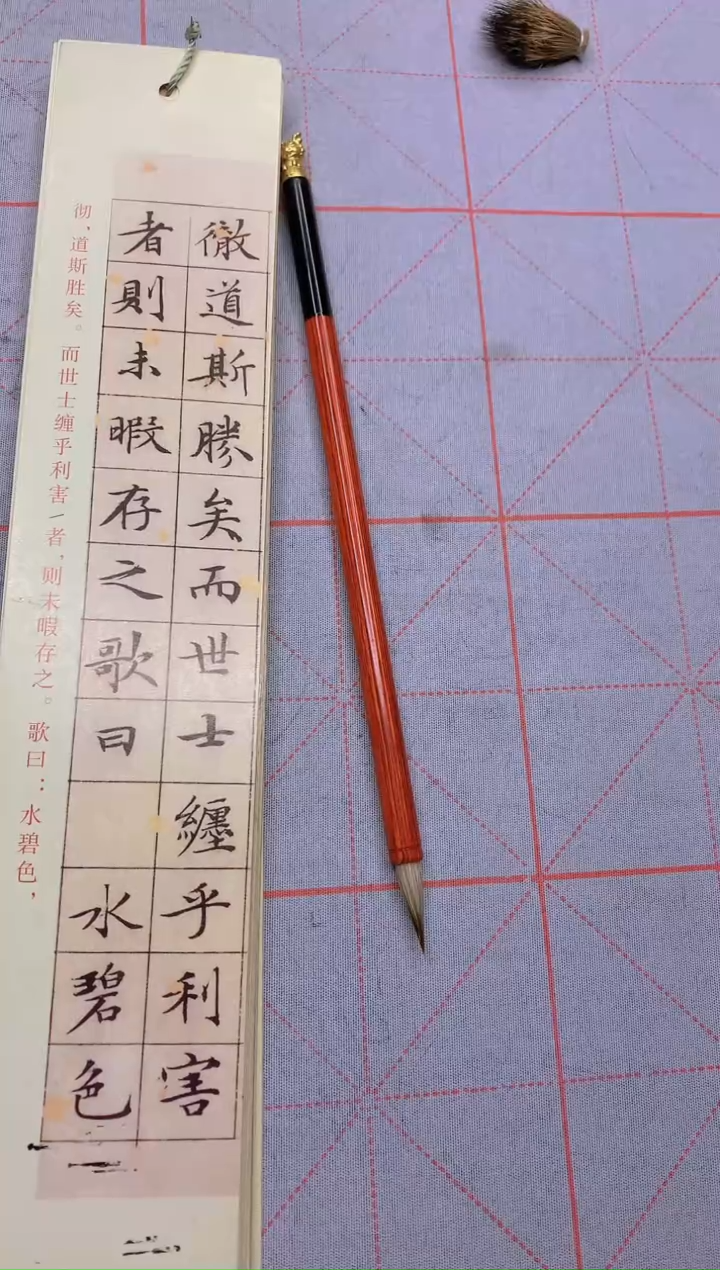 徹道斯勝矣而世士纏乎利害
者則未暇存之歌曰 水碧色
彻、道斯胜矣。而世士缠乎利害/者，则未暇存之。歌曰：水碧色，